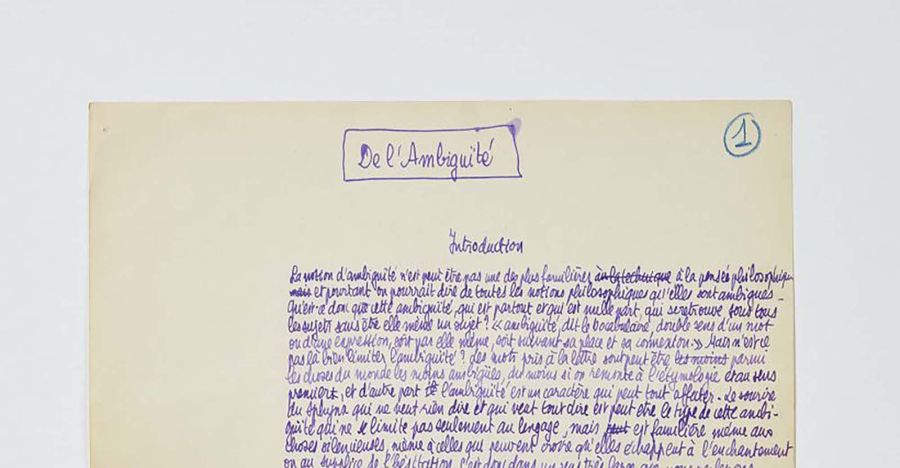 De l'Ambiguïté
1
Introduction
La notion d'ambiguïté n'est peut être pas une des plus familières à la technique à la pensée philosophique
mais et pourtant on pourrait dire de toutes les notions philosophiques qu'elles sont ambigues.
Qu'est-ce donc que cette ambiguïté, qui est partout et qui est nulle part, qui se retrouve sous tous
les sujets sans être elle même un sujet ? « ambiguïté, dit le vocabulaire, double sens d'un mot
ou d'une expression, soit par elle même, soit suivant sa place et sa connexion. » Mais n'est ce
pas là bien limiter l'ambiguïté ? Les mots pris à la lettre sont peut être les moins parmi
les choses du monde les moins ambigües, du moins si on remonte à l'étymologie et au sens
premiers, et d'autre part l'ambiguïté est un caractère qui peut tout affecter. Le sourire
du sphynx qui ne veut rien dire et qui veut tout dire est peut être le type de cette ambi-
guïté qui ne se limite pas seulement au langage, mais est familière même aux
choses silencieuses, même à celles que peuvent croire qu'elles échappent à l'enchantement
ou au supplice de l'hésitation. C'est donc dans un sens très large que nous